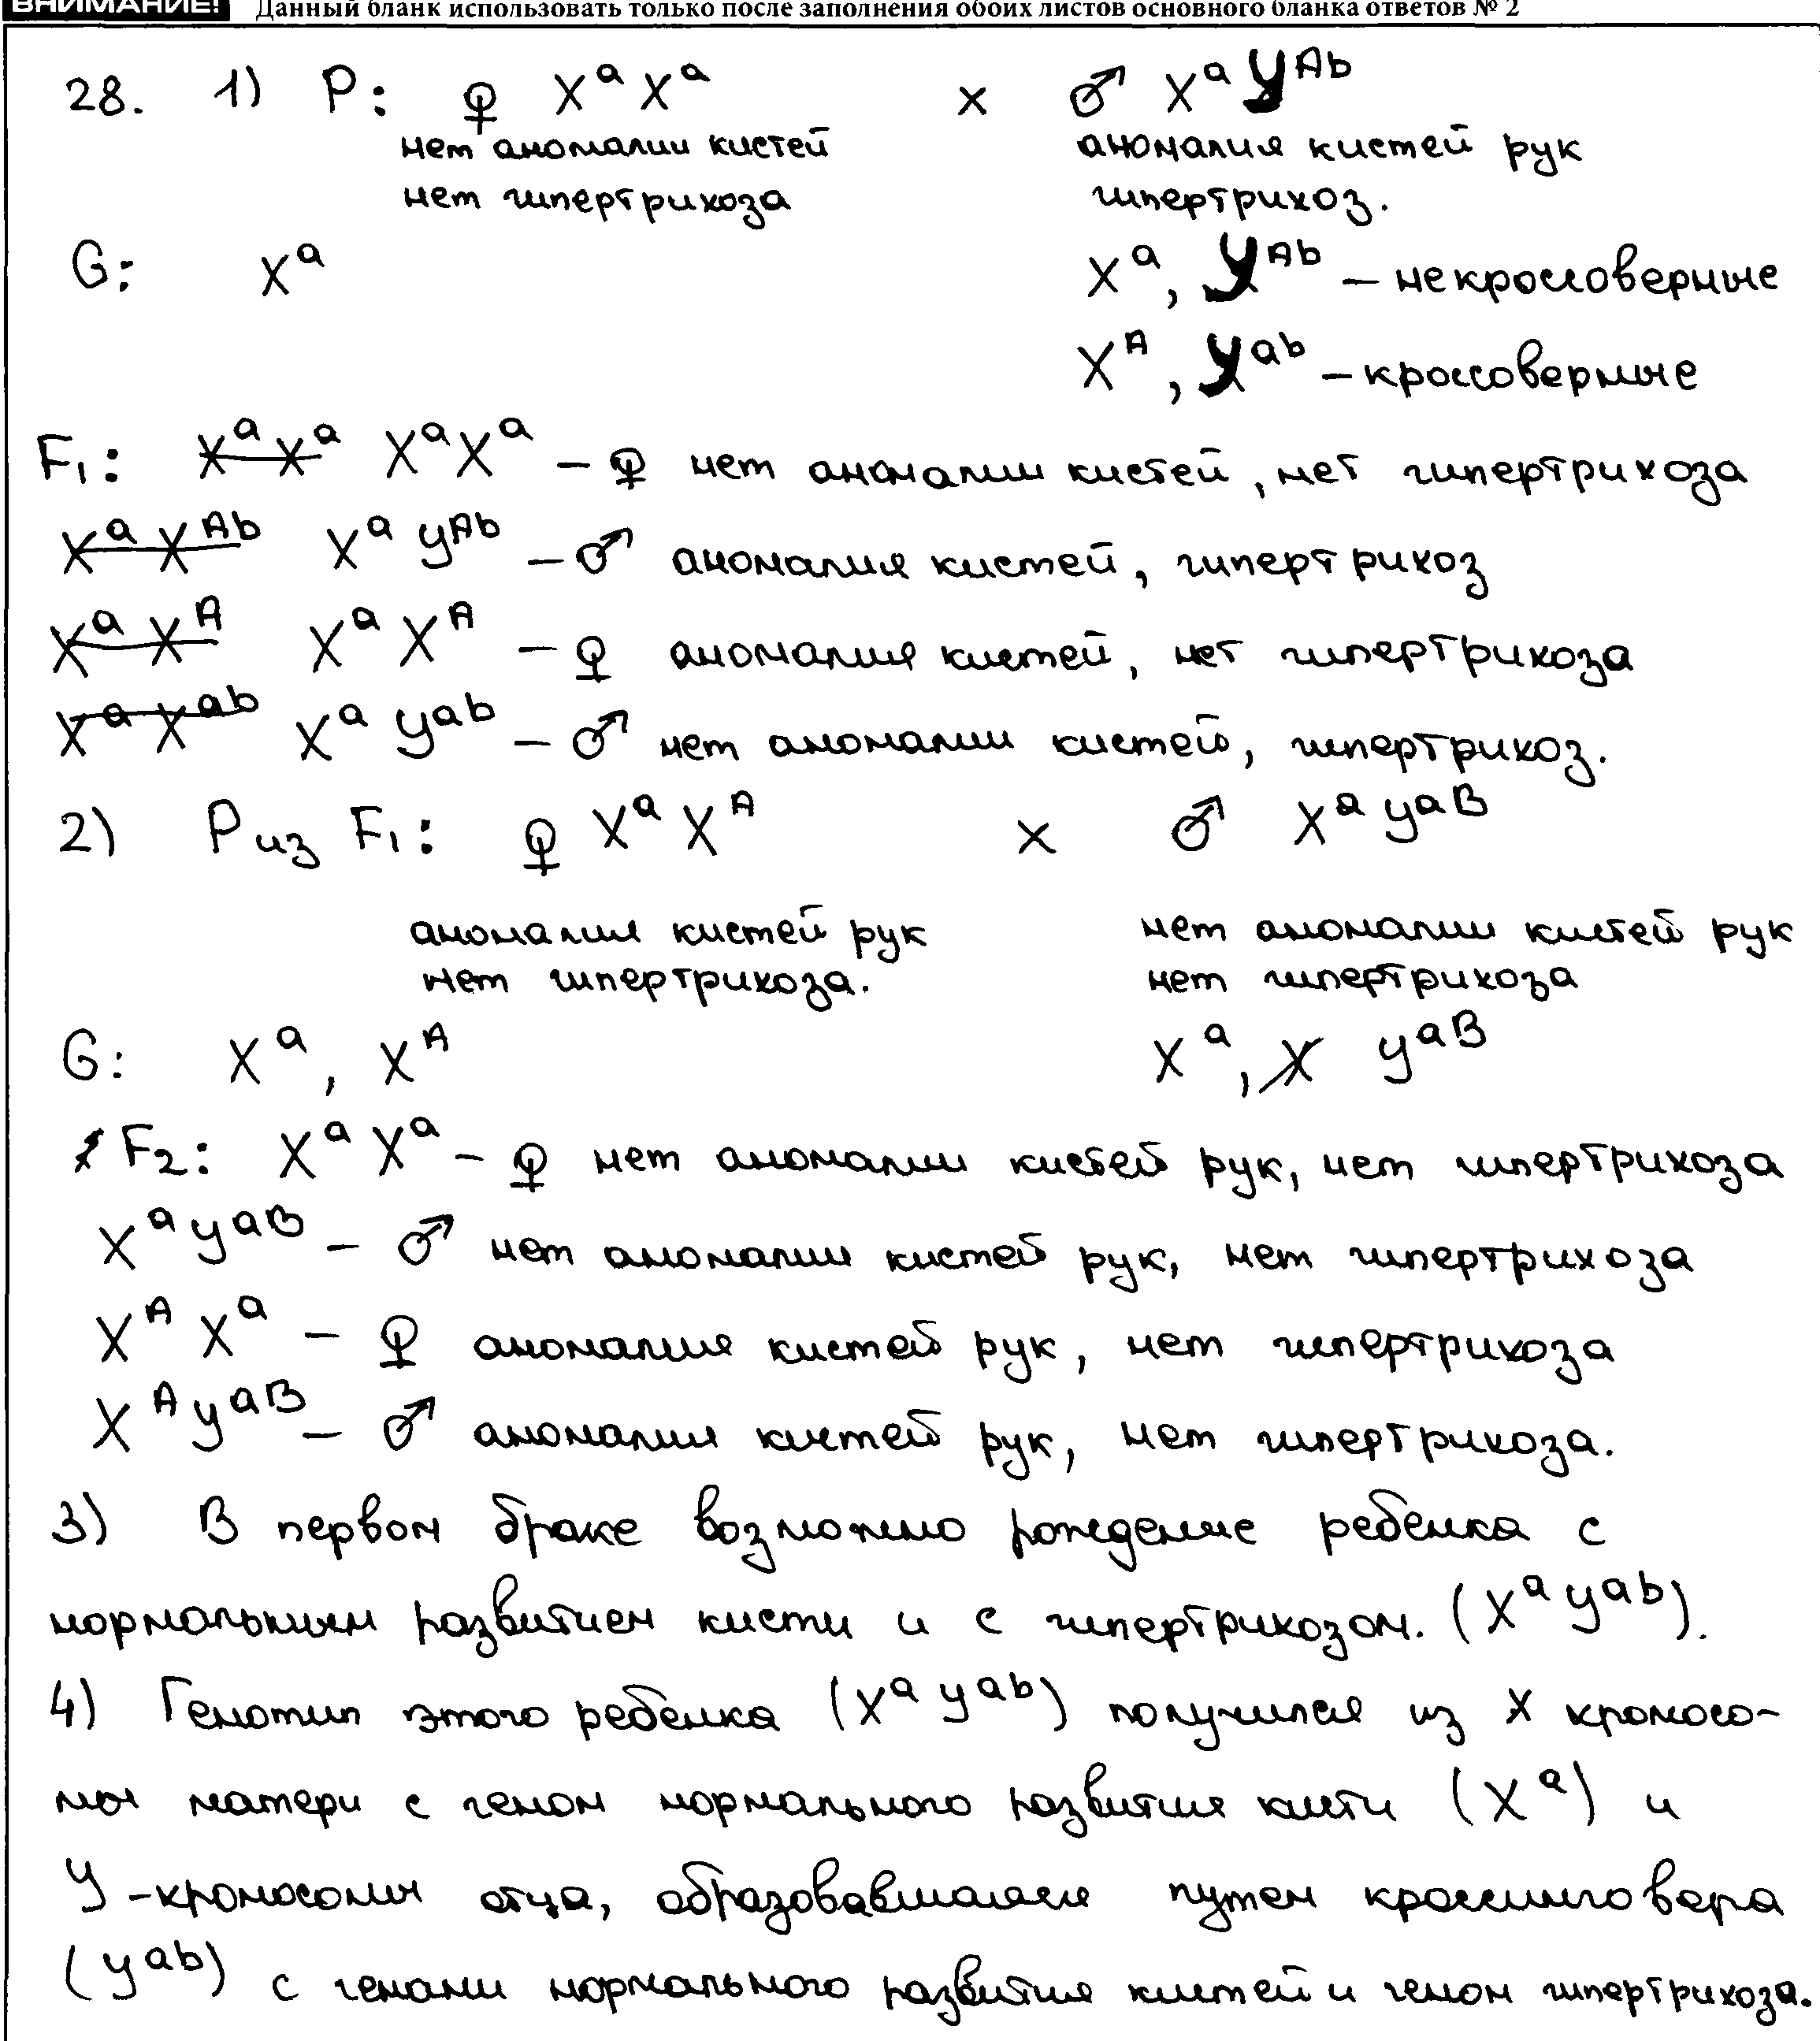 ВНИМАНИЕ! Данный бланк использовать только после заполнения обоих листов основного бланка ответов № 2
28. 1) P: ♀ XᵃXᵃ x ♂ XᵃYᴬᵇ
нет аномалии кистей аномалия кистей рук
нет гипертрихоза гипертрихоз.
G: Xᵃ Xᵃ, Yᴬᵇ – некроссоверные
Xᴬ, Yᵃᵇ – кроссоверные
F₁: XᵃXᵃ XᵃXᵃ – ♀ нет аномалии кистей, нет гипертрихоза
XᵃXᴬᵇ XᵃYᴬᵇ – ♂ аномалия кистей, гипертрихоз
XᵃXᴬ XᵃXᴬ – ♀ аномалия кистей, нет гипертрихоза
XᵃXᵃᵇ XᵃYᵃᵇ – ♂ нет аномалии кистей, гипертрихоз.
2) P из F₁: ♀ XᵃXᴬ x ♂ XᵃYᵃᴮ
аномалия кистей рук нет аномалии кистей рук
нет гипертрихоза. нет гипертрихоза
G: Xᵃ, Xᴬ Xᵃ, X Yᵃᴮ
F₂: XᵃXᵃ – ♀ нет аномалии кистей рук, нет гипертрихоза
XᵃYᵃᴮ – ♂ нет аномалии кистей рук, нет гипертрихоза
XᴬXᵃ – ♀ аномалия кистей рук, нет гипертрихоза
XᴬYᵃᴮ – ♂ аномалия кистей рук, нет гипертрихоза.
3) В первом браке возможно рождение ребенка с
нормальным развитием кисти и с гипертрихозом. (XᵃYᵃᵇ).
4) Генотип этого ребенка (XᵃYᵃᵇ) получился из X хромосо-
мы матери с геном нормального развития кисти (Xᵃ) и
Y-хромосомы отца, образовавшаяся путем кроссинговера
(Yᵃᵇ) с генами нормального развития кистей и геном гипертрихоза.